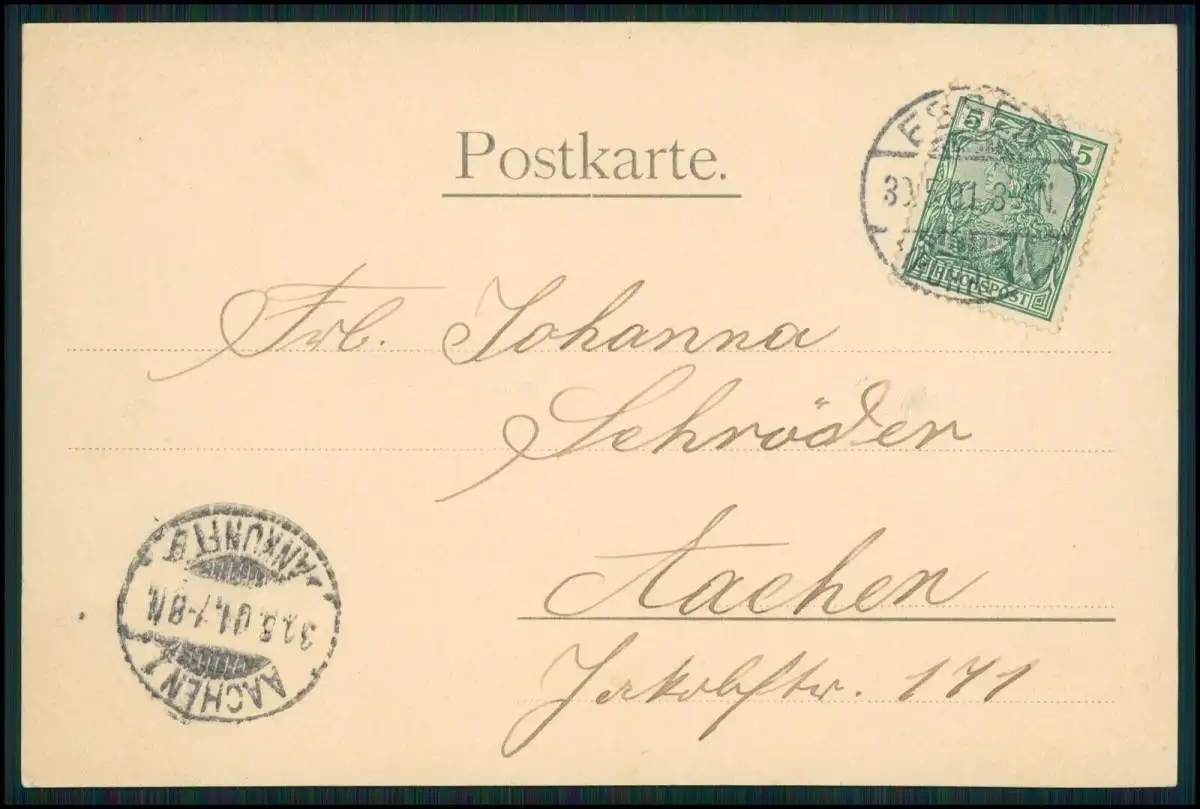 Postkarte.
ESSEN
5 5
REICHSPOST
Frl. Johanna
Schröder
Aachen
Jakobstr. 171
AACHEN 1
30.5.01.7-8N.
ANKUNFT